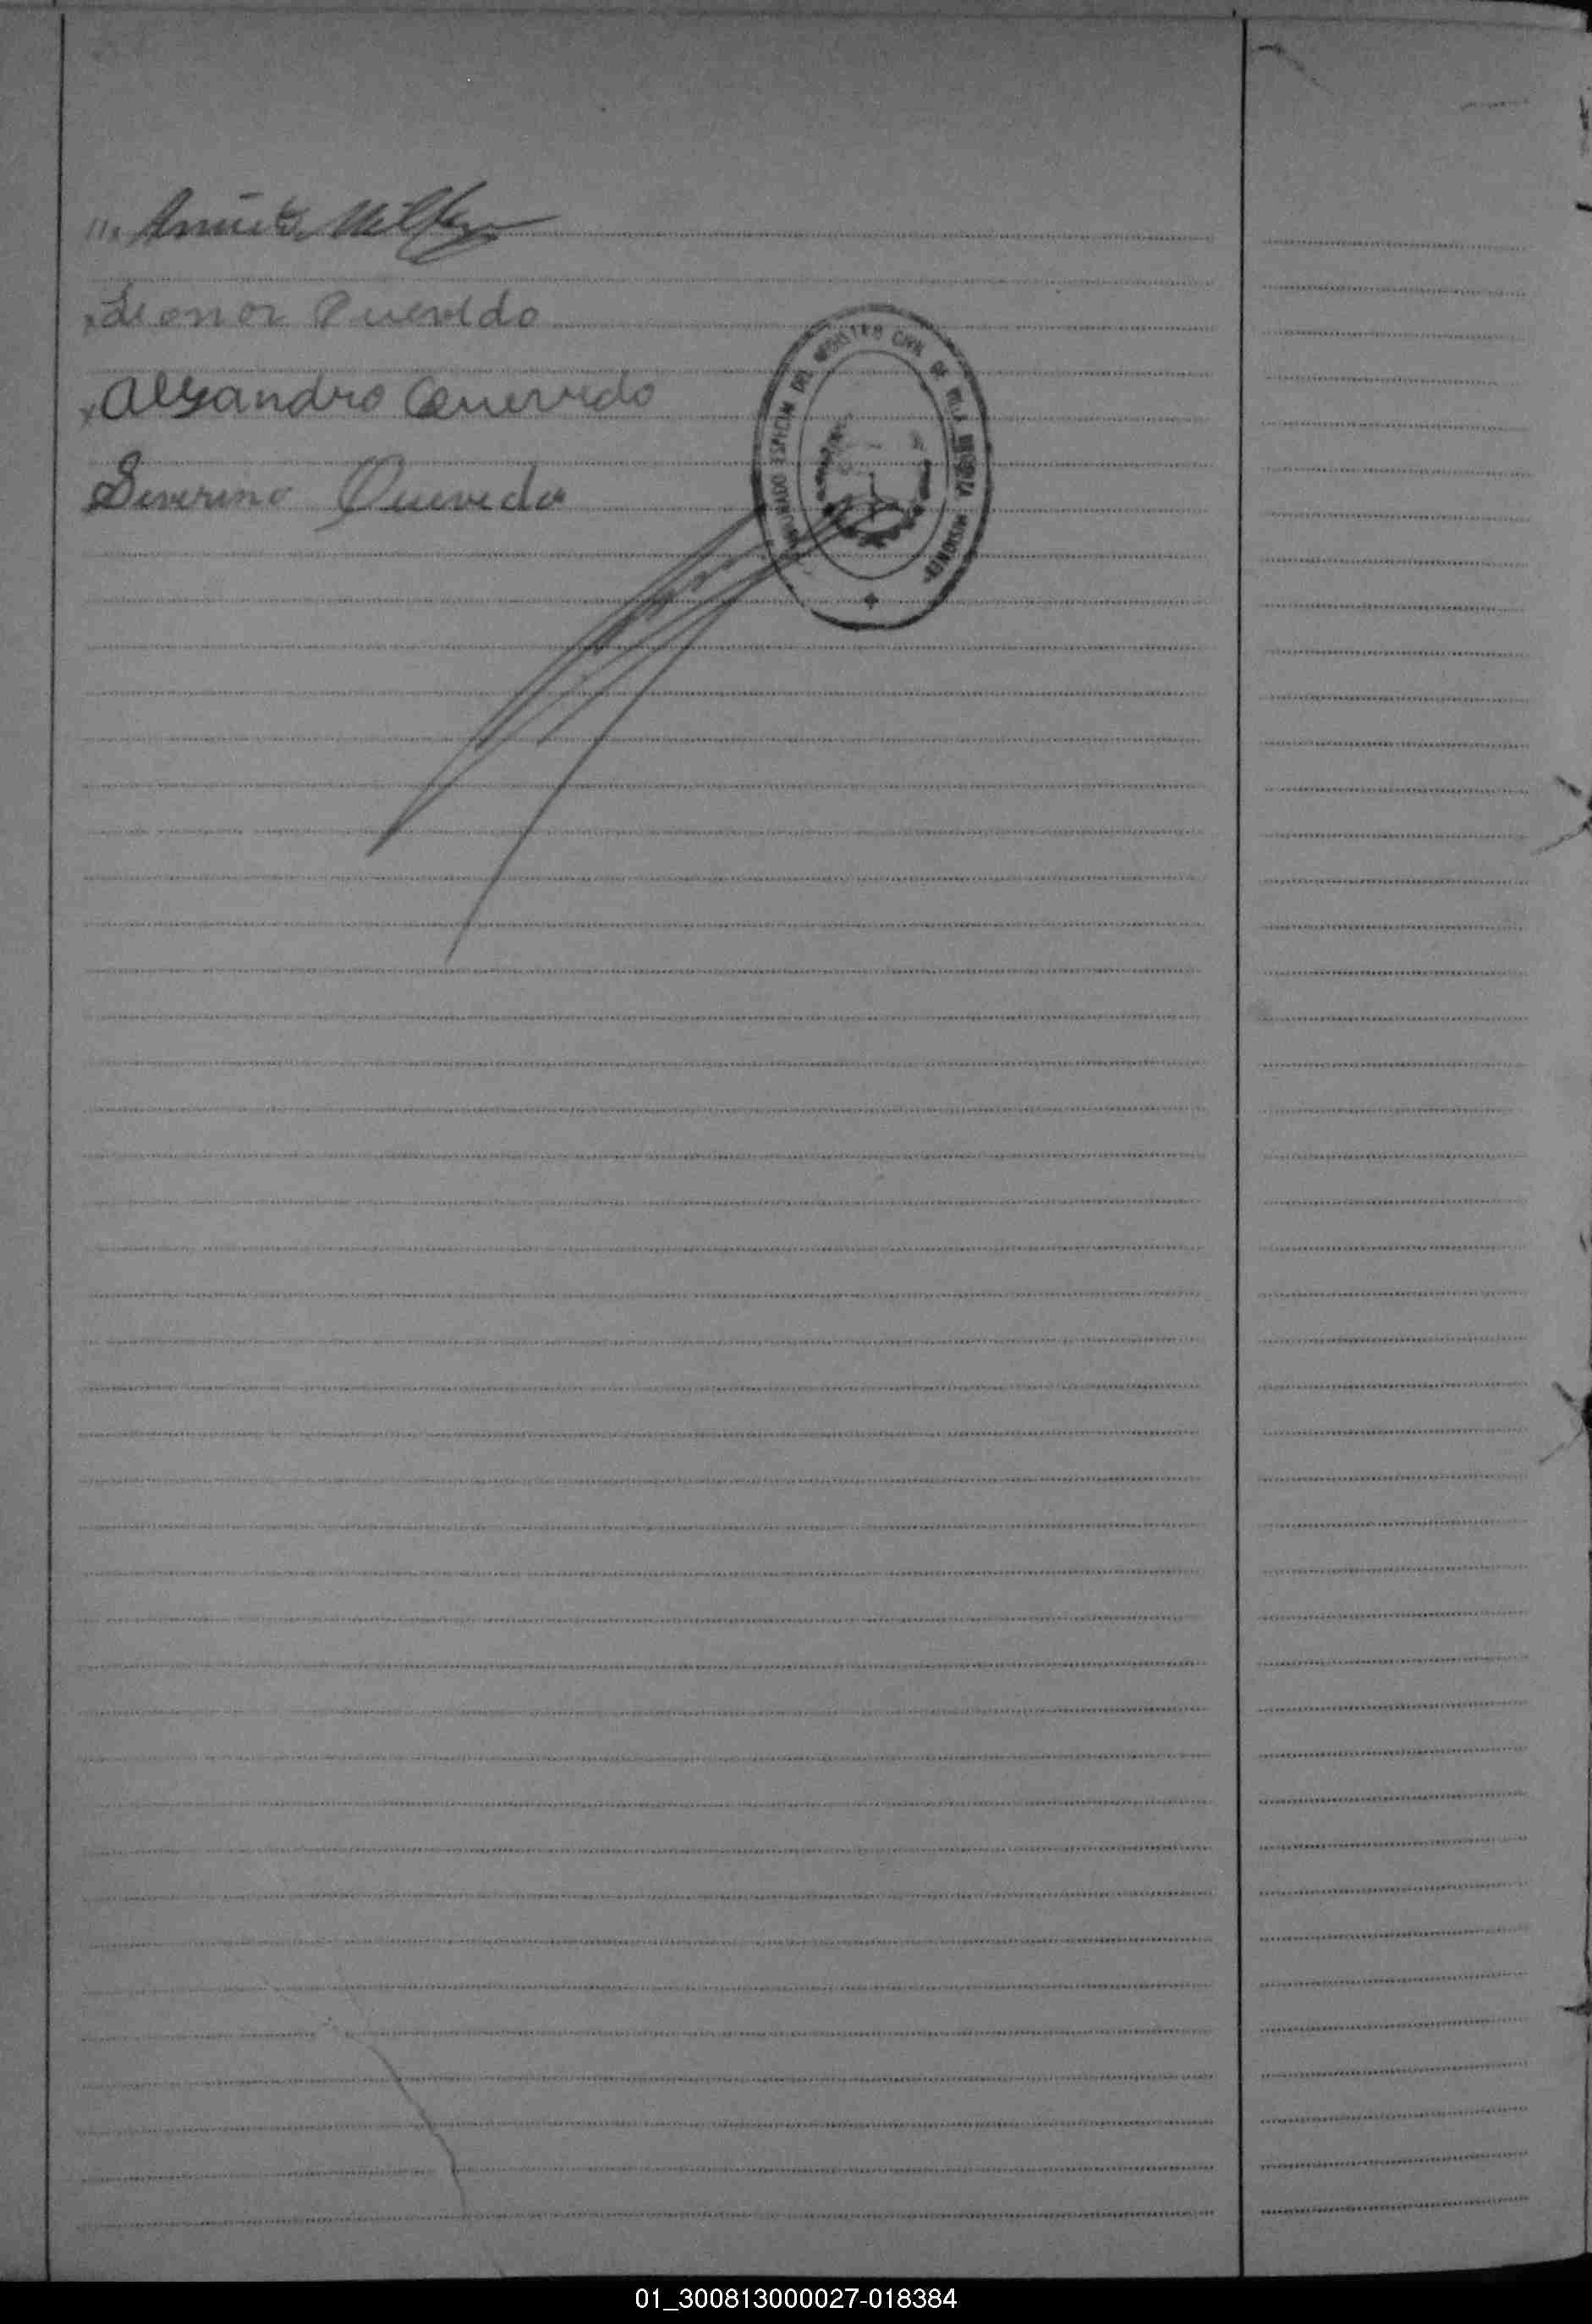 Leonor Quevedo
Alejandro Quevedo
Severino Quevedo
ENCARGADO ESPECIAL DEL REGISTRO CIVIL DE VILLA MISIONES
01_300813000027-018384